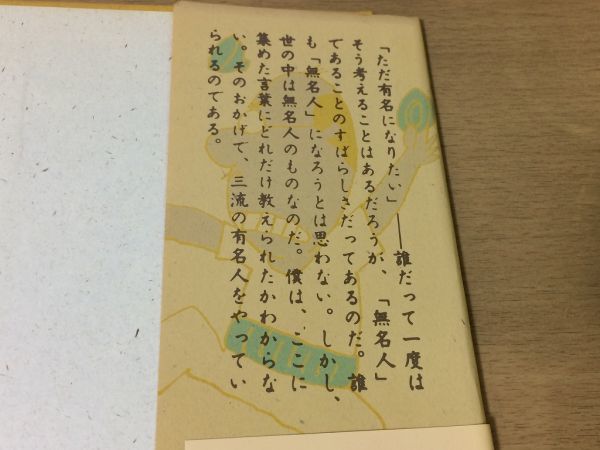 「ただ有名になりたい」――誰だって一度は
そう考えることはあるだろうが、「無名人」
であることのすばらしさだってあるのだ。誰
も「無名人」になろうとは思わない。しかし、
世の中は無名人のものなのだ。僕は、ここに
集めた言葉にどれだけ教えられたかわからな
い。そのおかげで、三流の有名人をやってい
られるのである。